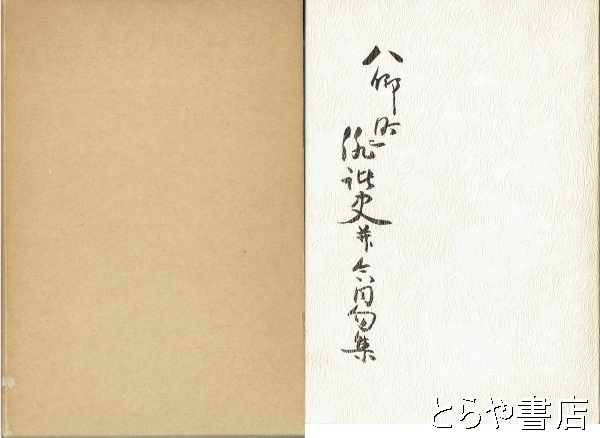 八郷町
俳諧史并合同句集
とらや書店